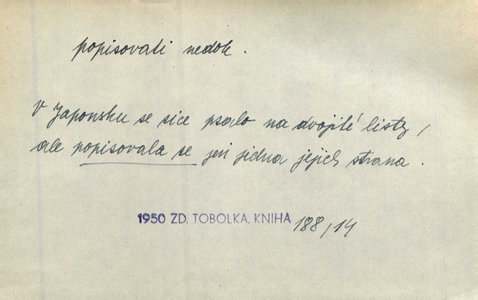 popisovati nedok.
v Japonsku se sice psalo na dvojité listy,
ale popisovala se jen jedna jejich strana.
1950 ZD. TOBOLKA, KNIHA 188/14